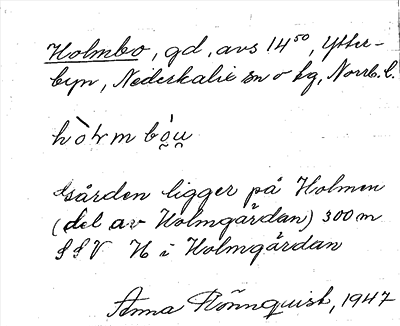 Holmbo, gd, avs 14⁵⁰, Ytter-
byn, Nederkalix sn o tg, Norrb. l.
hòɫmbò̯u̯
Gården ligger på Holmen
(del av Holmgårdan) 300 m
SSV H i Holmgårdan
Anna Rönnquist, 1947